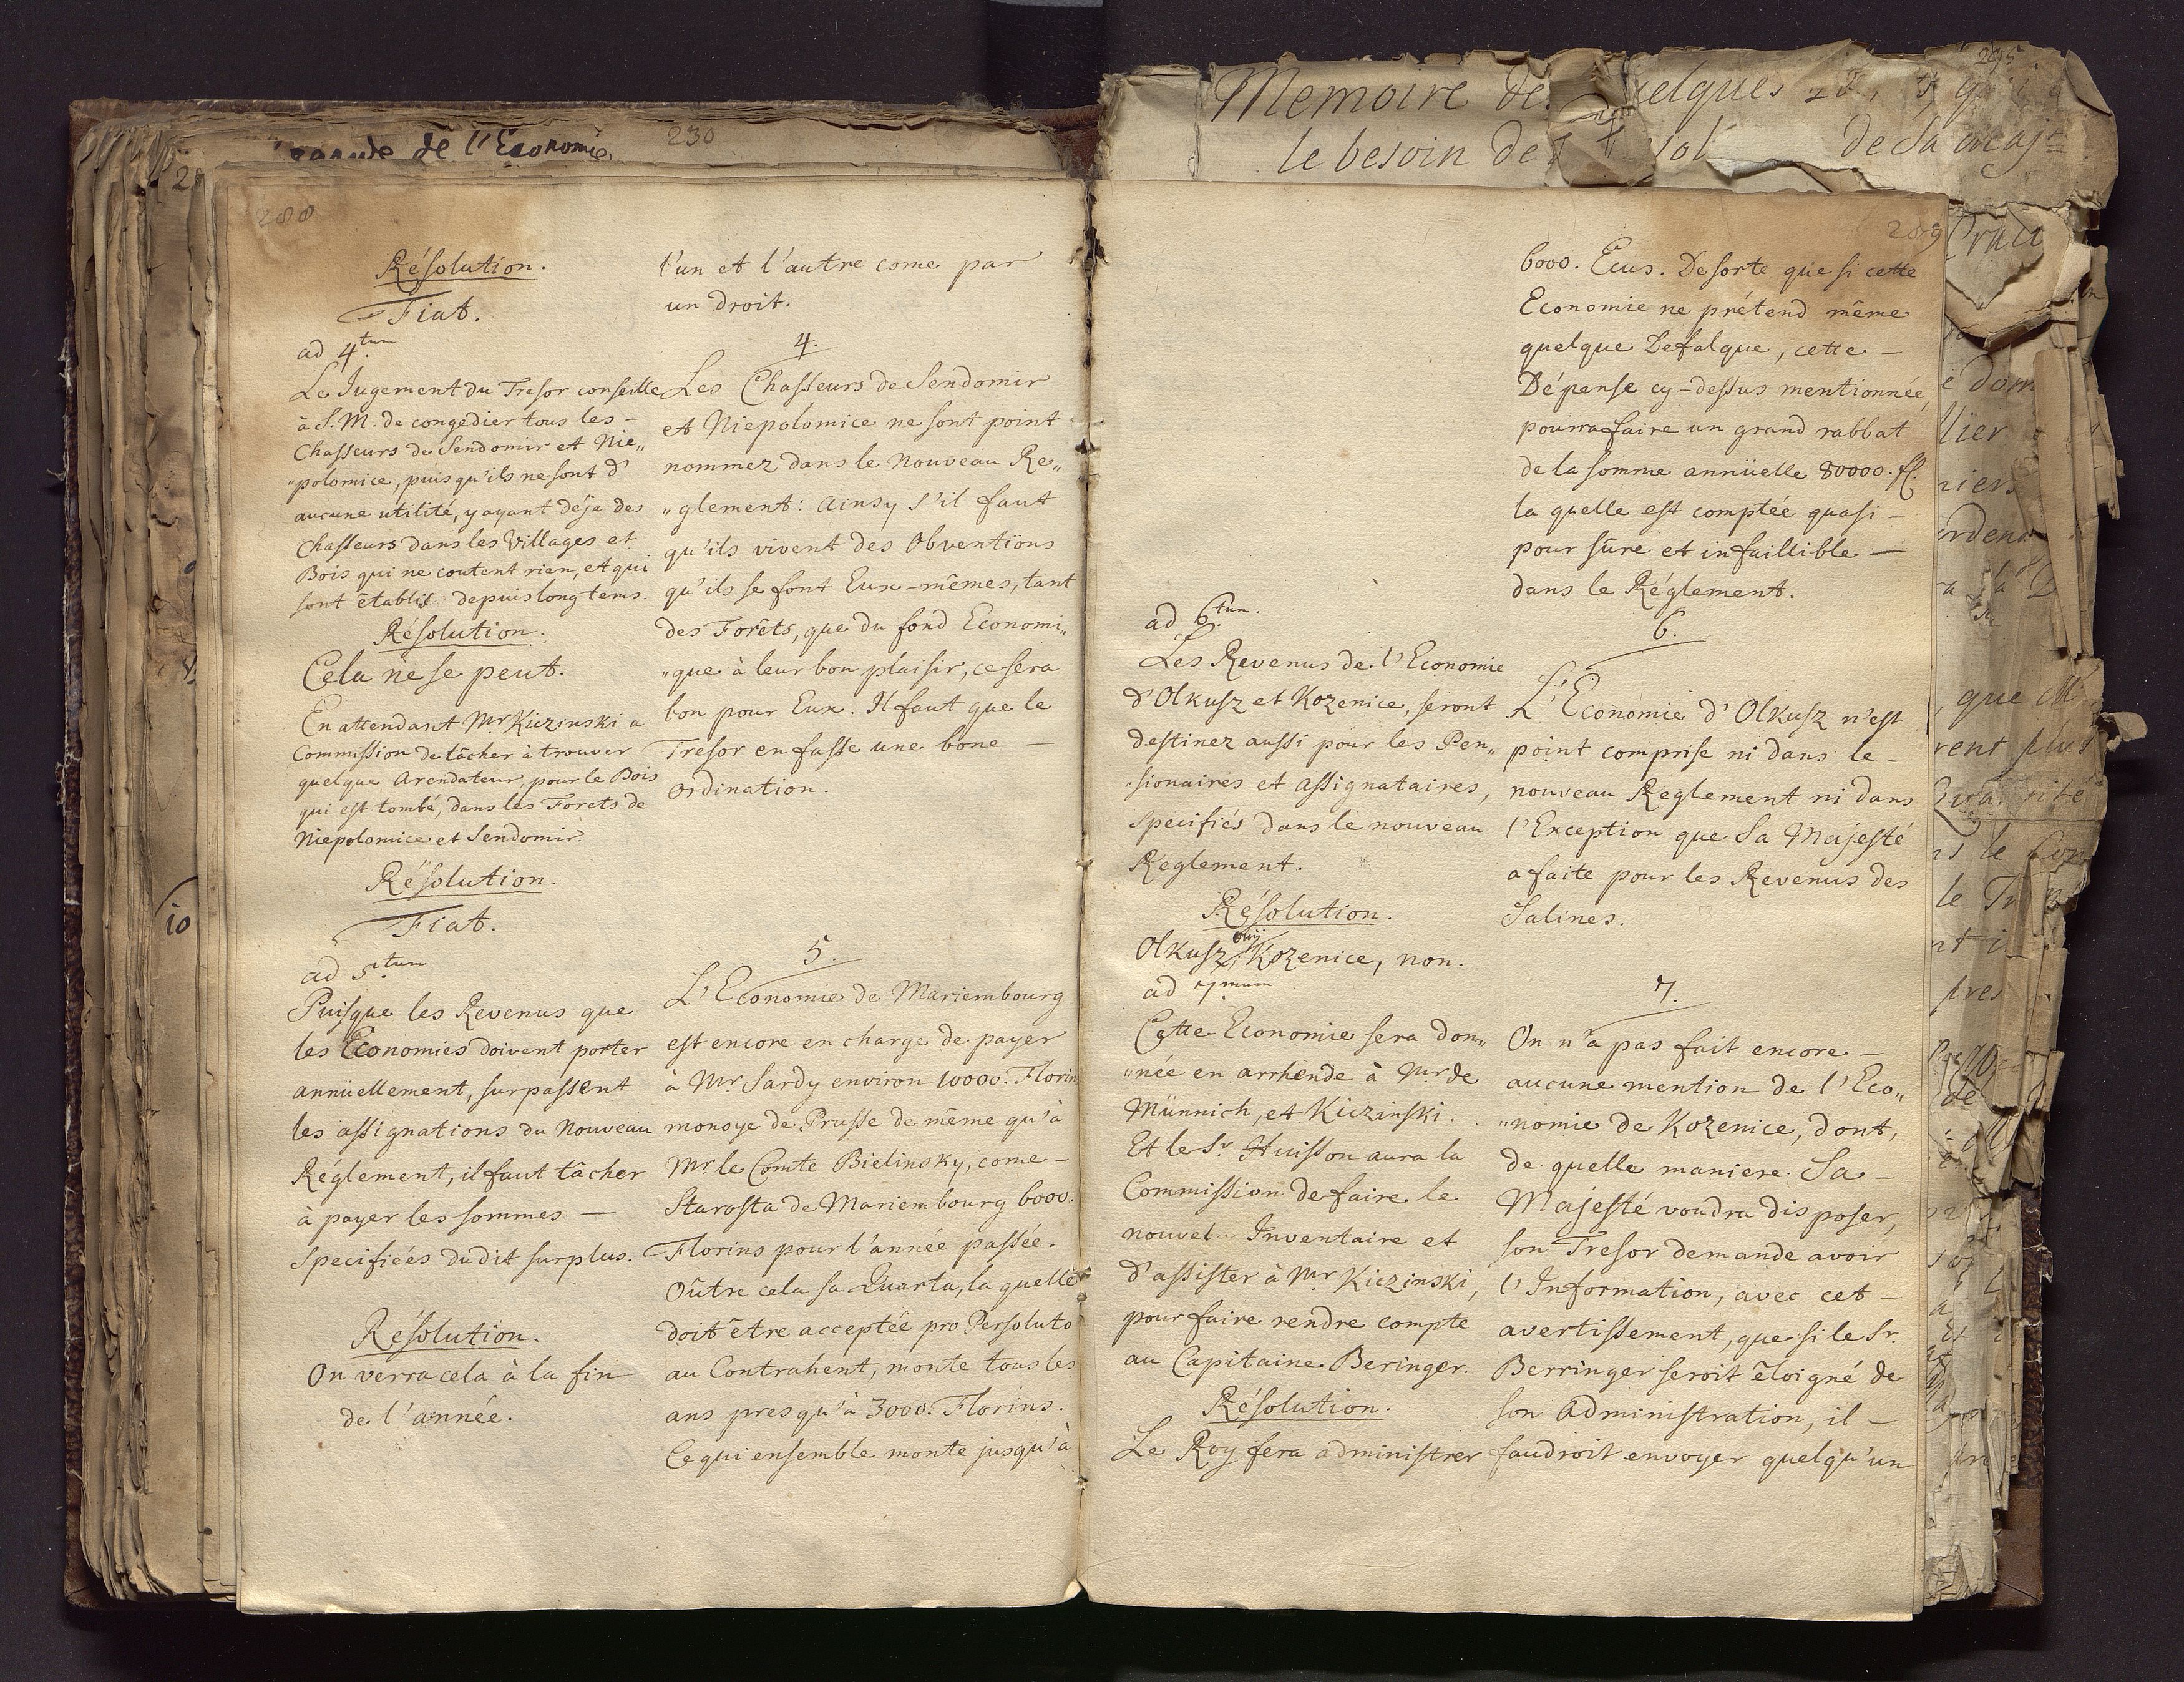 grande de l'Economie.
230
288
Résolution.
Fiat.
ad 4.tum
Le Jugement du Tresor conseille
à S. M. de congedier tous les –
Chasseurs de Sendomir et Nie„
„polomice, puisqu'ils ne sont d'
aucune utilité, y ayant déja des
Chasseurs dans les Villages et
Bois qui ne coutent rien, et qui
sont êtablis depuis longtems.
Résolution.
Cela ne se peut.
En attendant Mr. Kiczinski a
Commission de tâcher à trouver
quelque Arendateur pour le Bois
qui est tombé, dans les Forets de
Niepolomice et Sendomir.
Résolution.
Fiat.
ad 5.tum
Puisque les Revenus que
les Economies doivent porter
annüellement, surpassent
les assignations du Nouveau
Réglement, il faut tâcher
à payer les sommes —
specifiées du dit surplus.
Résolution.
On verra cela à la fin
de l'année.
l'un et l'autre come par
un droit.
4.
Les Chasseurs de Sendomir
et Niepolomice ne sont point
nommez dans le Nouveau Re„
„glement: ainsy s'il faut
qu'ils vivent des Obventions
qu'ils se font Eux-mêmes, tant
des Forêts, que du fond Economi„
„que à leur bon plaisir, ce sera
bon pour Eux. Il faut que le
Tresor en fasse une bone —
ordination.
5.
L'Economie de Mariembourg
est encore en charge de payer
à Mr Sardy environ 10000. Florin
monoye de Prusse de même qu'à
Mr. le Comte Bielinsky, come –
Starosta de Mariembourg 6000.
Florins pour l'année passée.
Oûtre cela sa Quarta, la quelle
doit être acceptée pro Persoluto
au Contrahent, monte tous les
ans presqu'à 3000. Florins.
Ce qui ensemble monte jusqu'à
Memoire de quelques
le besoin de de Sa Majté
295
289
ad 6.tum.
Les Revenus de l'Economie
d'Olkusz et Kozenice, seront
destinez aussi pour les Pen„
„sionaires et assignataires,
specifiés dans le nouveau
Reglement.
Résolution.
Olkusz, ouy Kozenice, non.
ad 7.mum
Cette Economie sera don„
„née en arrhende à Mr. de
Münnich, et Kiczinski.
Et le Sr. Huisson aura la
Commission de faire le
nouvel Inventaire et
d'assister à Mr Kiczinski,
pour faire rendre compte
au Capitaine Beringer.
Résolution.
Le Roy fera administrer
6000. Ecus. De sorte que si cette
Economie ne prétend même
quelque Defalque, cette –
Dépense cy-dessus mentionnée,
pourra faire un grand rabbat
de la somme annüelle 80000. fl.
la quelle est comptée quasi –
pour sûre et infaillible —
dans le Réglement.
6.
L'Economie d'Olkusz n'est
point comprise ni dans le –
nouveau Reglement ni dans
l'Exception que Sa Majesté
a faite pour les Revenus des
Salines.
7.
On n'a pas fait encore –
aucune mention de l'Eco„
„nomie de Kozenice, dont,
de quelle maniere Sa –
Majesté voudra disposer,
son Tresor demande avoir
l'Information, avec cet –
avertissement, que si le Sr.
Berringer seroit êloigné de
son Administration, il –
faudroit envoyer quelqu'un
10